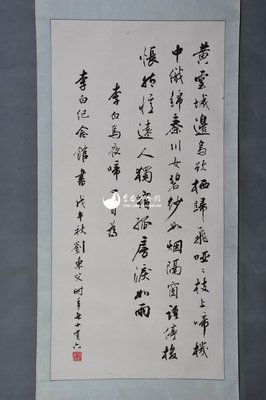 黃雲城邊烏欲栖歸飛啞〻枝上啼機
中織錦秦川女碧紗如烟隔窗語停梭
悵然憶遠人獨宿孤房淚如雨
李白烏夜啼一首為
李白纪念館書 戊午秋劉東父时年七十有六